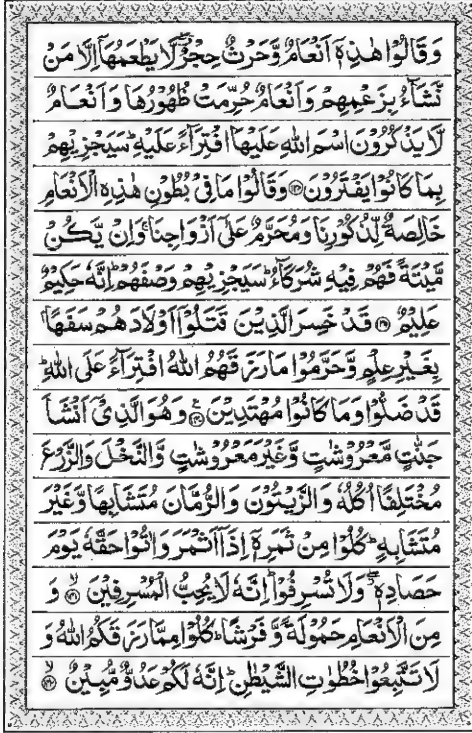 وَقَالُوْا هٰذِهٖۤ اَنْعَامٌ وَّحَرْثٌ حِجْرٌ ۖۗ لَّا یَطْعَمُهَاۤ اِلَّا مَنْ
نَّشَآءُ بِزَعْمِهِمْ وَاَنْعَامٌ حُرِّمَتْ ظُهُوْرُهَا وَاَنْعَامٌ
لَّا یَذْكُرُوْنَ اسْمَ اللهِ عَلَیْهَا افْتِرَآءً عَلَیْهِ ؕ سَیَجْزِیْهِمْ
بِمَا كَانُوْا یَفْتَرُوْنَ ﴿۱۳۸﴾ وَقَالُوْا مَا فِیْ بُطُوْنِ هٰذِهِ الْاَنْعَامِ
خَالِصَةٌ لِّذُكُوْرِنَا وَمُحَرَّمٌ عَلٰۤی اَزْوَاجِنَا ۚ وَاِنْ یَّكُنْ
مَّیْتَةً فَهُمْ فِیْهِ شُرَكَآءُ ؕ سَیَجْزِیْهِمْ وَصْفَهُمْ ؕ اِنَّهٗ حَكِیْمٌ
عَلِیْمٌ ﴿۱۳۹﴾ قَدْ خَسِرَ الَّذِیْنَ قَتَلُوْۤا اَوْلَادَهُمْ سَفَهًۢا
بِغَیْرِ عِلْمٍ وَّحَرَّمُوْا مَا رَزَقَهُمُ اللهُ افْتِرَآءً عَلَی اللهِ ؕ
قَدْ ضَلُّوْا وَمَا كَانُوْا مُهْتَدِیْنَ ﴿۱۴۰﴾ وَهُوَ الَّذِیْۤ اَنْشَاَ
جَنّٰتٍ مَّعْرُوْشٰتٍ وَّغَیْرَ مَعْرُوْشٰتٍ وَّالنَّخْلَ وَالزَّرْعَ
مُخْتَلِفًا اُكُلُهٗ وَالزَّیْتُوْنَ وَالرُّمَّانَ مُتَشَابِهًا وَّغَیْرَ
مُتَشَابِهٍ ؕ كُلُوْا مِنْ ثَمَرِهٖۤ اِذَاۤ اَثْمَرَ وَاٰتُوْا حَقَّهٗ یَوْمَ
حَصَادِهٖ ۖؗ وَلَا تُسْرِفُوْا ؕ اِنَّهٗ لَا یُحِبُّ الْمُسْرِفِیْنَ ۙ﴿۱۴۱﴾ وَ
مِنَ الْاَنْعَامِ حَمُوْلَةً وَّفَرْشًا ؕ كُلُوْا مِمَّا رَزَقَكُمُ اللهُ وَ
لَا تَتَّبِعُوْا خُطُوٰتِ الشَّیْطٰنِ ؕ اِنَّهٗ لَكُمْ عَدُوٌّ مُّبِیْنٌ ۙ﴿۱۴۲﴾